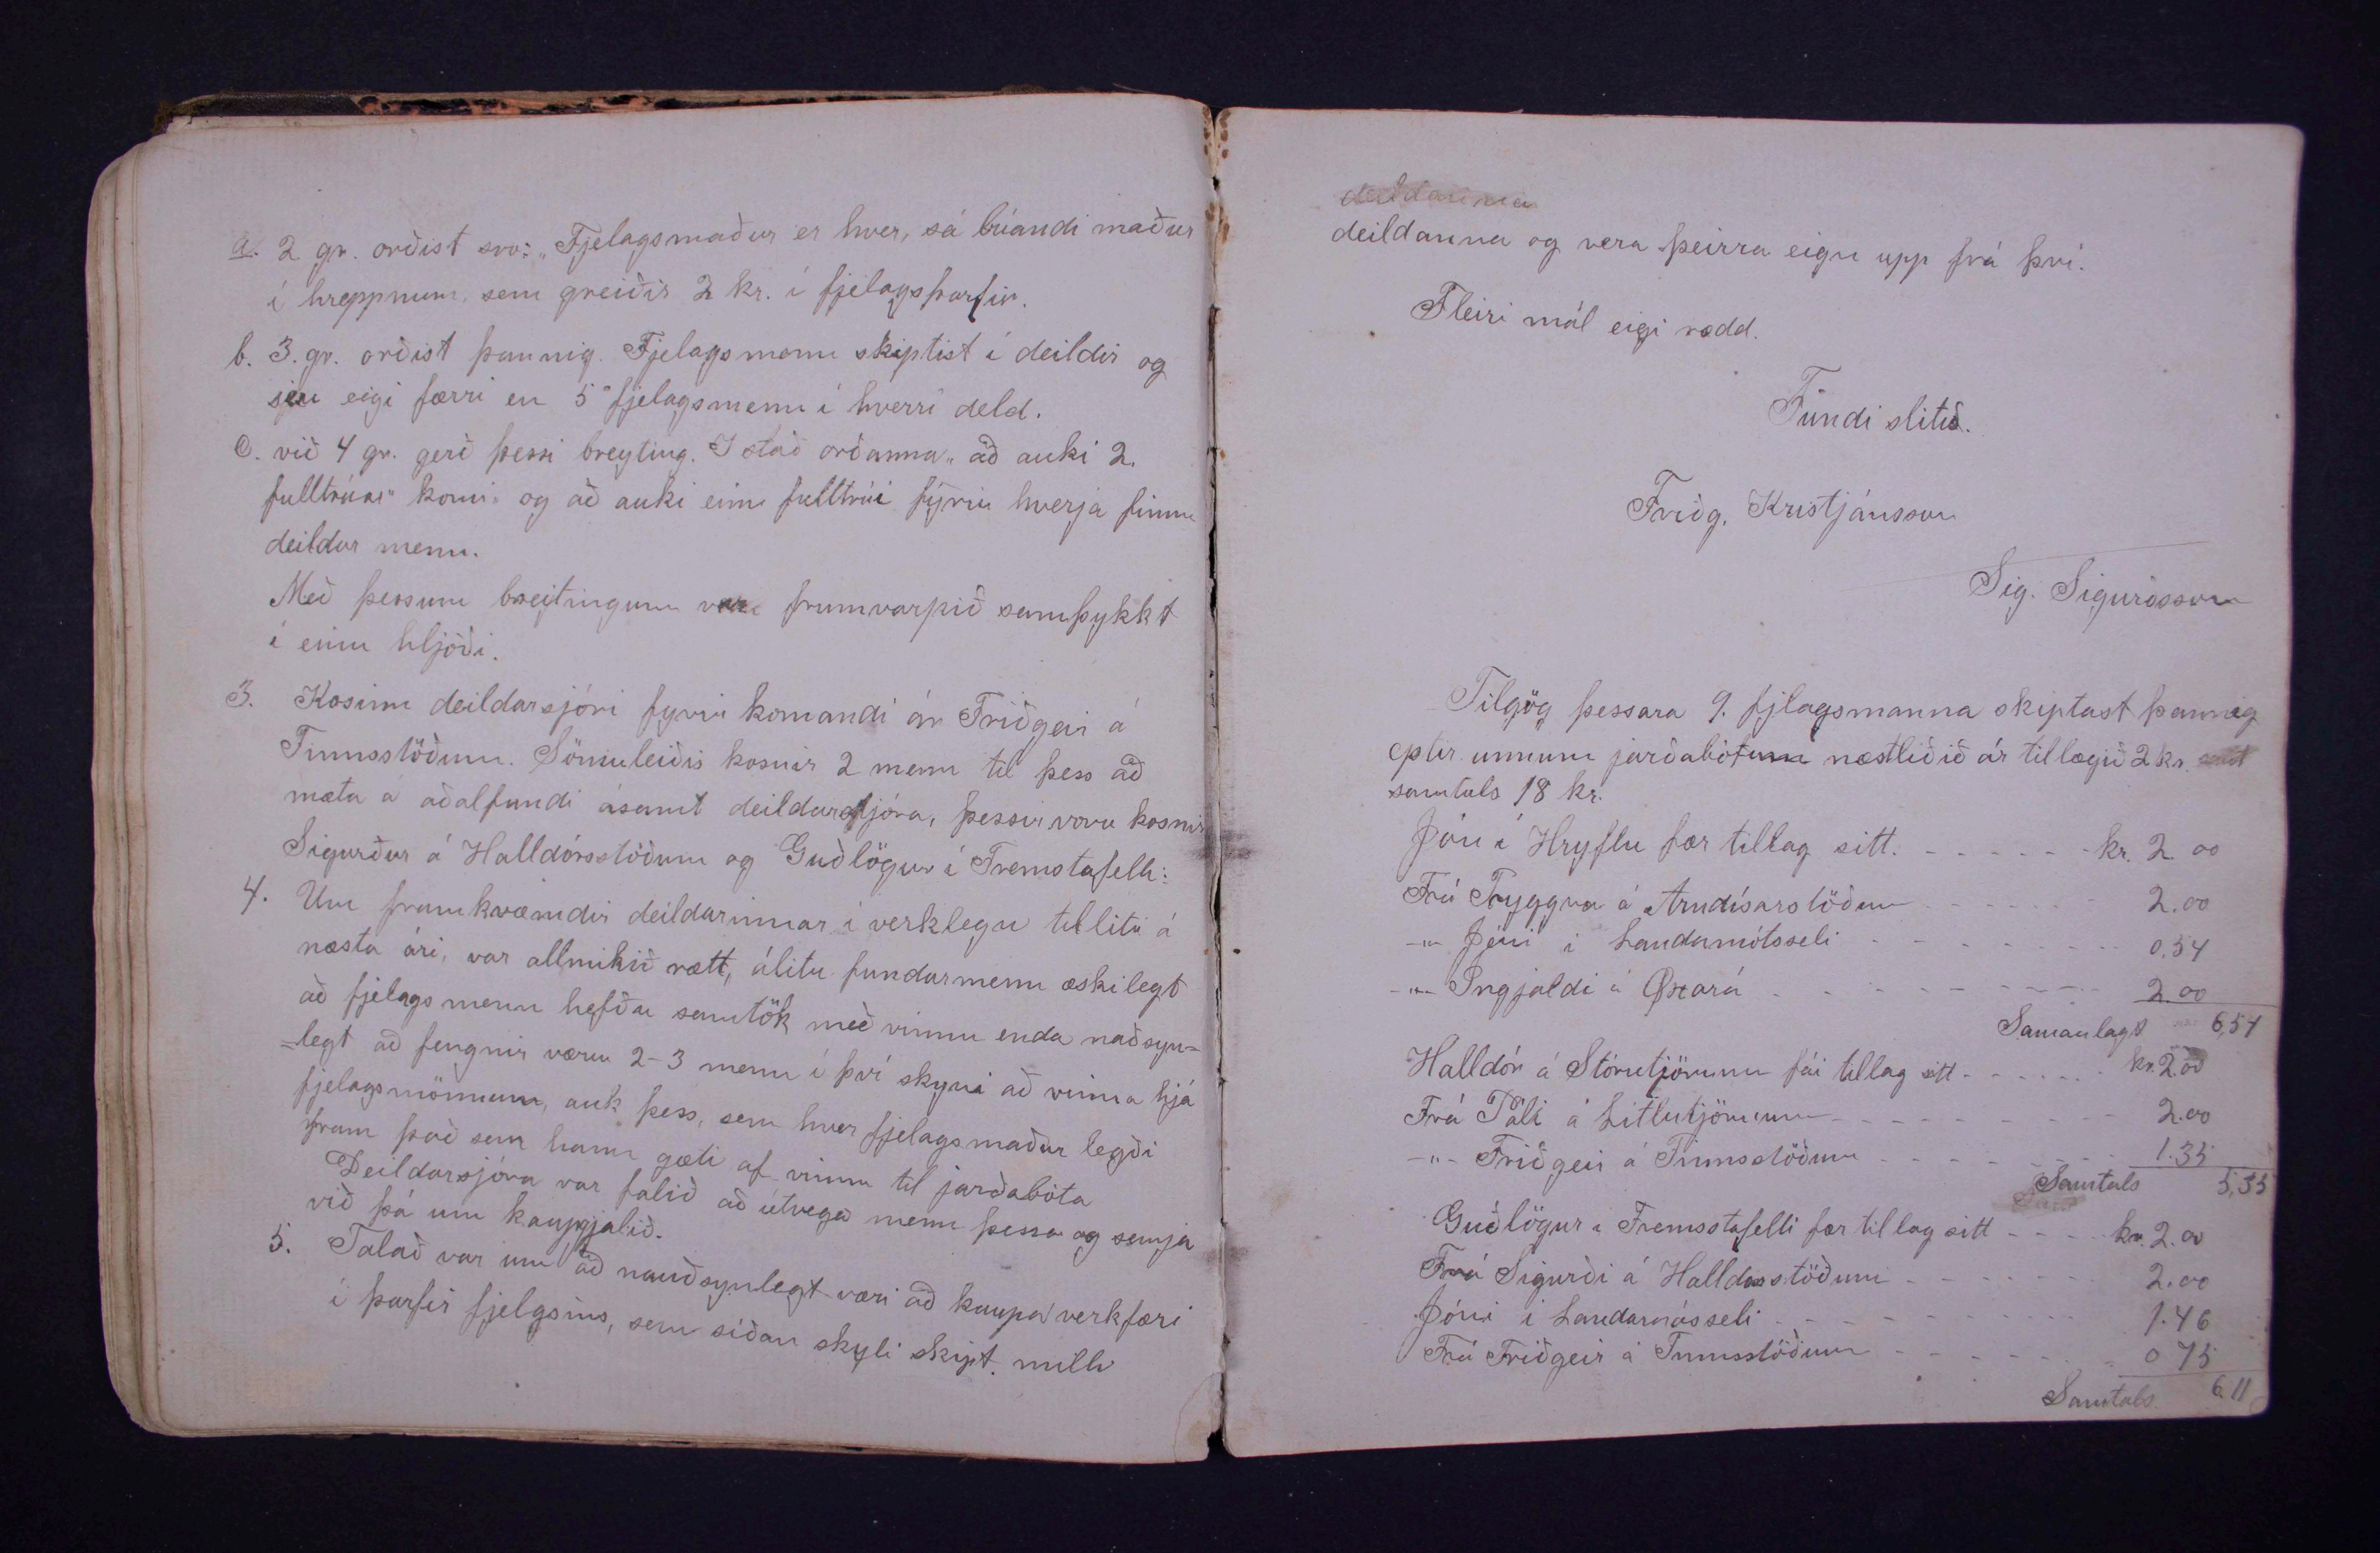 a. 2 gr. orðist svo: „Fjelagsmaður er hver, sá búandi maður
í hreppnum, sem greiðir 2 kr. í fjelagsþarfir.
b. 3. gr. orðist þannig. Fjelagsmenn skiptist í deildir og
sjeu eigi færri en 5 fjelagsmenn í hverri deld.
C. við 4 gr. gerð þessi breyting. I stað orðanna „að auki 2.
fulltrúar" komi „og að auki einn fulltrúi fyrir hverja fimm
deildar menn.
Með þessum breitingum var frumvarpið samþykkt
í einu hljóði.
3. Kosinn deildarsjóri fyrir komandi ár Friðgeir á
Finnsstöðum. Sömuleiðis kosnir 2 menn til þess að
mæta á aðalfundi ásamt deildarstjóra, þessir voru kosnir
Sigurður á Halldórsstöðum og Guðlögur í Fremstafelli:
4. Um framkvæmdir deildarinnar í verklegu tilliti á
næsta ári, var allmikið rætt, álitu fundarmenn æskilegt
að fjelagsmenn hefðu samtök með vinnu enda naðsyn=
=legt að fengnir væru 2-3 menn í því skyni að vinna hjá
fjelagsmönnum, auk þess, sem hver fjelagsmaður legði
fram það sem hann gæti af vinnu til jarðabóta
Deildarsjóra var falið að útvega menn þessa og semja
við þá um kaupgjalið.
5. Talað var um að nauðsynlegt væri að kaupa verkfæri
í þarfir fjelgsins, sem síðan skyli skipt milli
deildanna
deildanna og vera þeirra eign upp frá því.
Fleiri mál eigi rædd.
Fundi slitið.
Friðg. Kristjánsson
Sig. Sigurðsson
Tilgög þessara 9. fjlagsmanna skiptast þannig
eptir unnum jarðabótum næstliðið ár tillægið 2 kr.
samtals 18 kr.
Jón í Hryflu fær tillag sitt. - - - - - - kr. 2 00
Frá Tryggva á Arndísarstöðum - - - - - - 2.00
-"- Jóni í Landamótsseli - - - - - - 0.54
-"- Ingjaldi á Øxará - - - - - - 2.00
Samanlagt 6,54
Halldór á Stórutjörnum fái tillag sitt - - - - - - kr. 2.00
Frá Páli á Litlutjörnum - - - - - - 2.00
-"- Friðgeir á Finnsstöðum - - - - - - 1.35
Samtals 5,35
Guðlögur í Fremsstafelli fær tillag sitt - - - - kr. 2.00
Frá Sigurði á Halldsstöðum - - - - - - 2.00
Jóni í Landamósseli - - - - - - 1.46
Frá Friðgeir á Finnsstöðum - - - - - - 0 75
Samtals 6.11